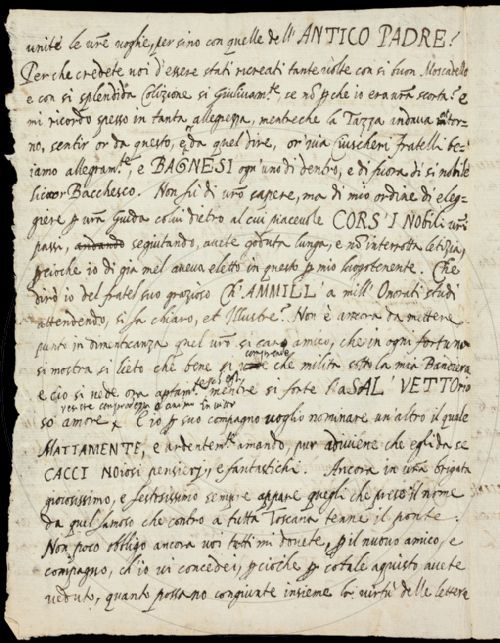 unite le vrẽ voghe, per sino con quelle dell' ANTICO PADRE?
Perche credete voi d'essere stati ricreati tante volte con si buon Moscadello
e con si splendida Colizione si Giulivam.te, se nõ pche io era vrã scorta? e
mi ricordo spesso in tanta allegrezza, mentreche la Tazza andava attor-
no, sentir or da questo, or da quel dire, or' via Ciuscheri fratelli be-
iamo allegram.te, e BAGNESI ogn'uno di dentro, e di fuora di si nobile
licor Bacchesco. Non fu di vrõ sapere, ma di mio ordine di eleg-
giere p vra Guida colui dietro al cui piacevole CORS'I NObili vri
passi, andando seguitando, avete goduta lunga, e nõ interrotta letizia,
pcioche io di già mel aveva eletto in questo p mio luogotenente. Che
dirò io del fratel suo grazioso Ch'AMMILL' a mill' Onorati studi
attendendo, si fa chiaro, et Illustre? Non è ancora da mettere
punto in dimenticanza quel vrõ si caro amico, che in ogni fortuna
si mostra si lieto che bene si comprende che milita sotto la mia Bandiera
e ciò si vede ora aptam.te mentre si forte RaSAL' VETTOrio
so amore. E io p suo compagno voglio nominare un'altro il quale
MATTAMENTE, e ardentem.te amando, pur adiviene che egli da se
CACCI NOiosi pensieri, e fantastichi. Ancora in vrã brigata
gioiosissimo, e festosissimo sempre appare quegli che prese il nome
da quel famoso che contro a tutta Toscana tenne il ponte.
Non poco obbligo ancora voi tutti mi dovete, p il nuovo amico, e
compagno, ch'io vi concedei, pcioche p cotale aquisto avete
veduto, quanto possano congiunte insieme la virtù delle lettere